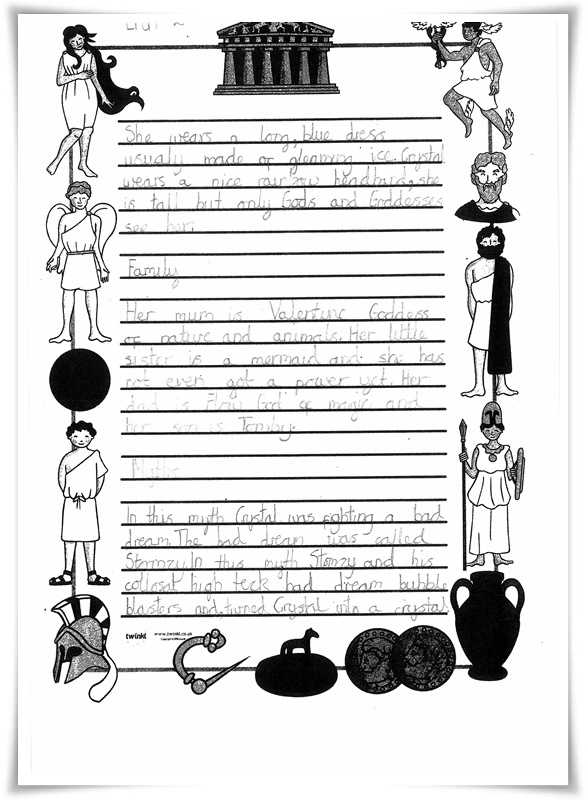 She wears a long, blue dress
usualy made of gleaming ice. Crystal
wears a nice rainbow headband, she
is tall but only Gods and Goddesses
see her.
Family
Her mum is Valentine Goddess
of native and animals. Her little
sister is a mermaid and she has
not even got a power yet. Her
dad is God of magic and
her son is Tomby.
Myths
In this myth Crystal was fighting a bad
dream. The bad dream was called
Stormzy. In this myth Stomzy and his
collosat high teck bad dream bubble
blasters and turned Crystal into a crystal
twinkl www.twinkl.co.uk